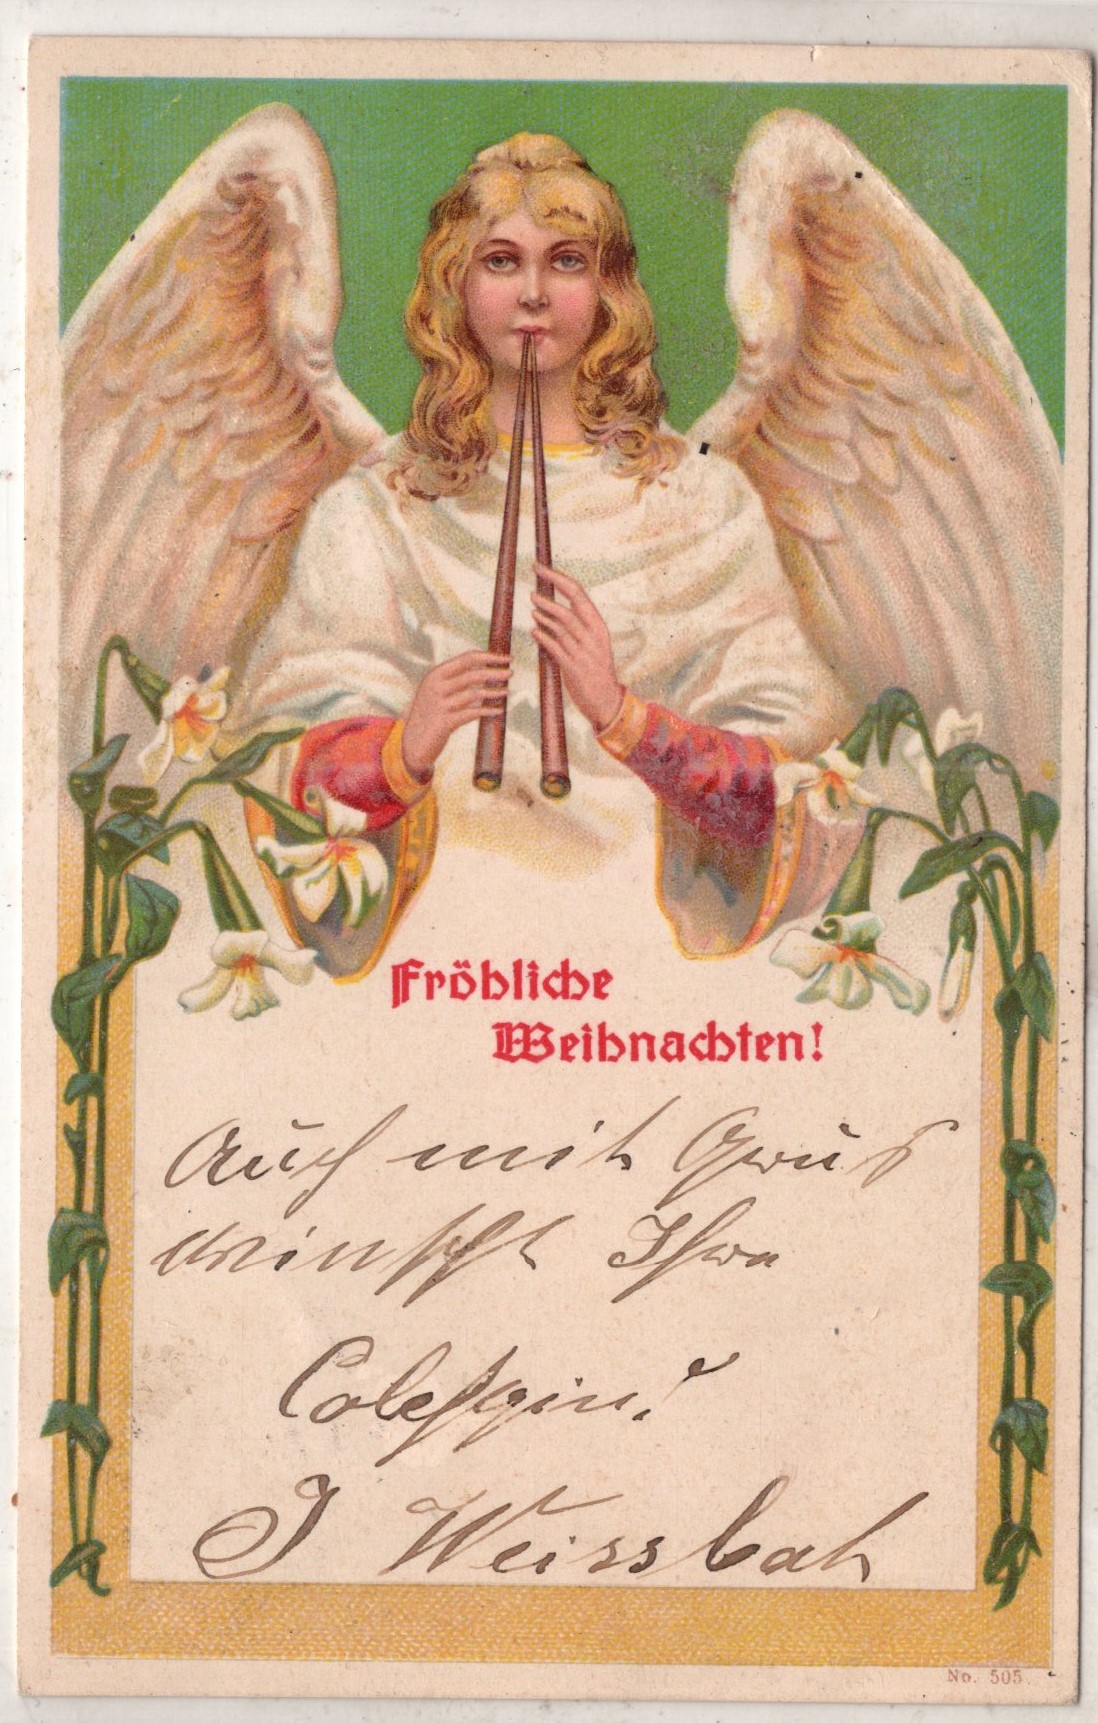 Fröhliche
Weihnachten!
Auch mit Grus
winscht Ihre
Colegin!
J Weissbah
No. 505